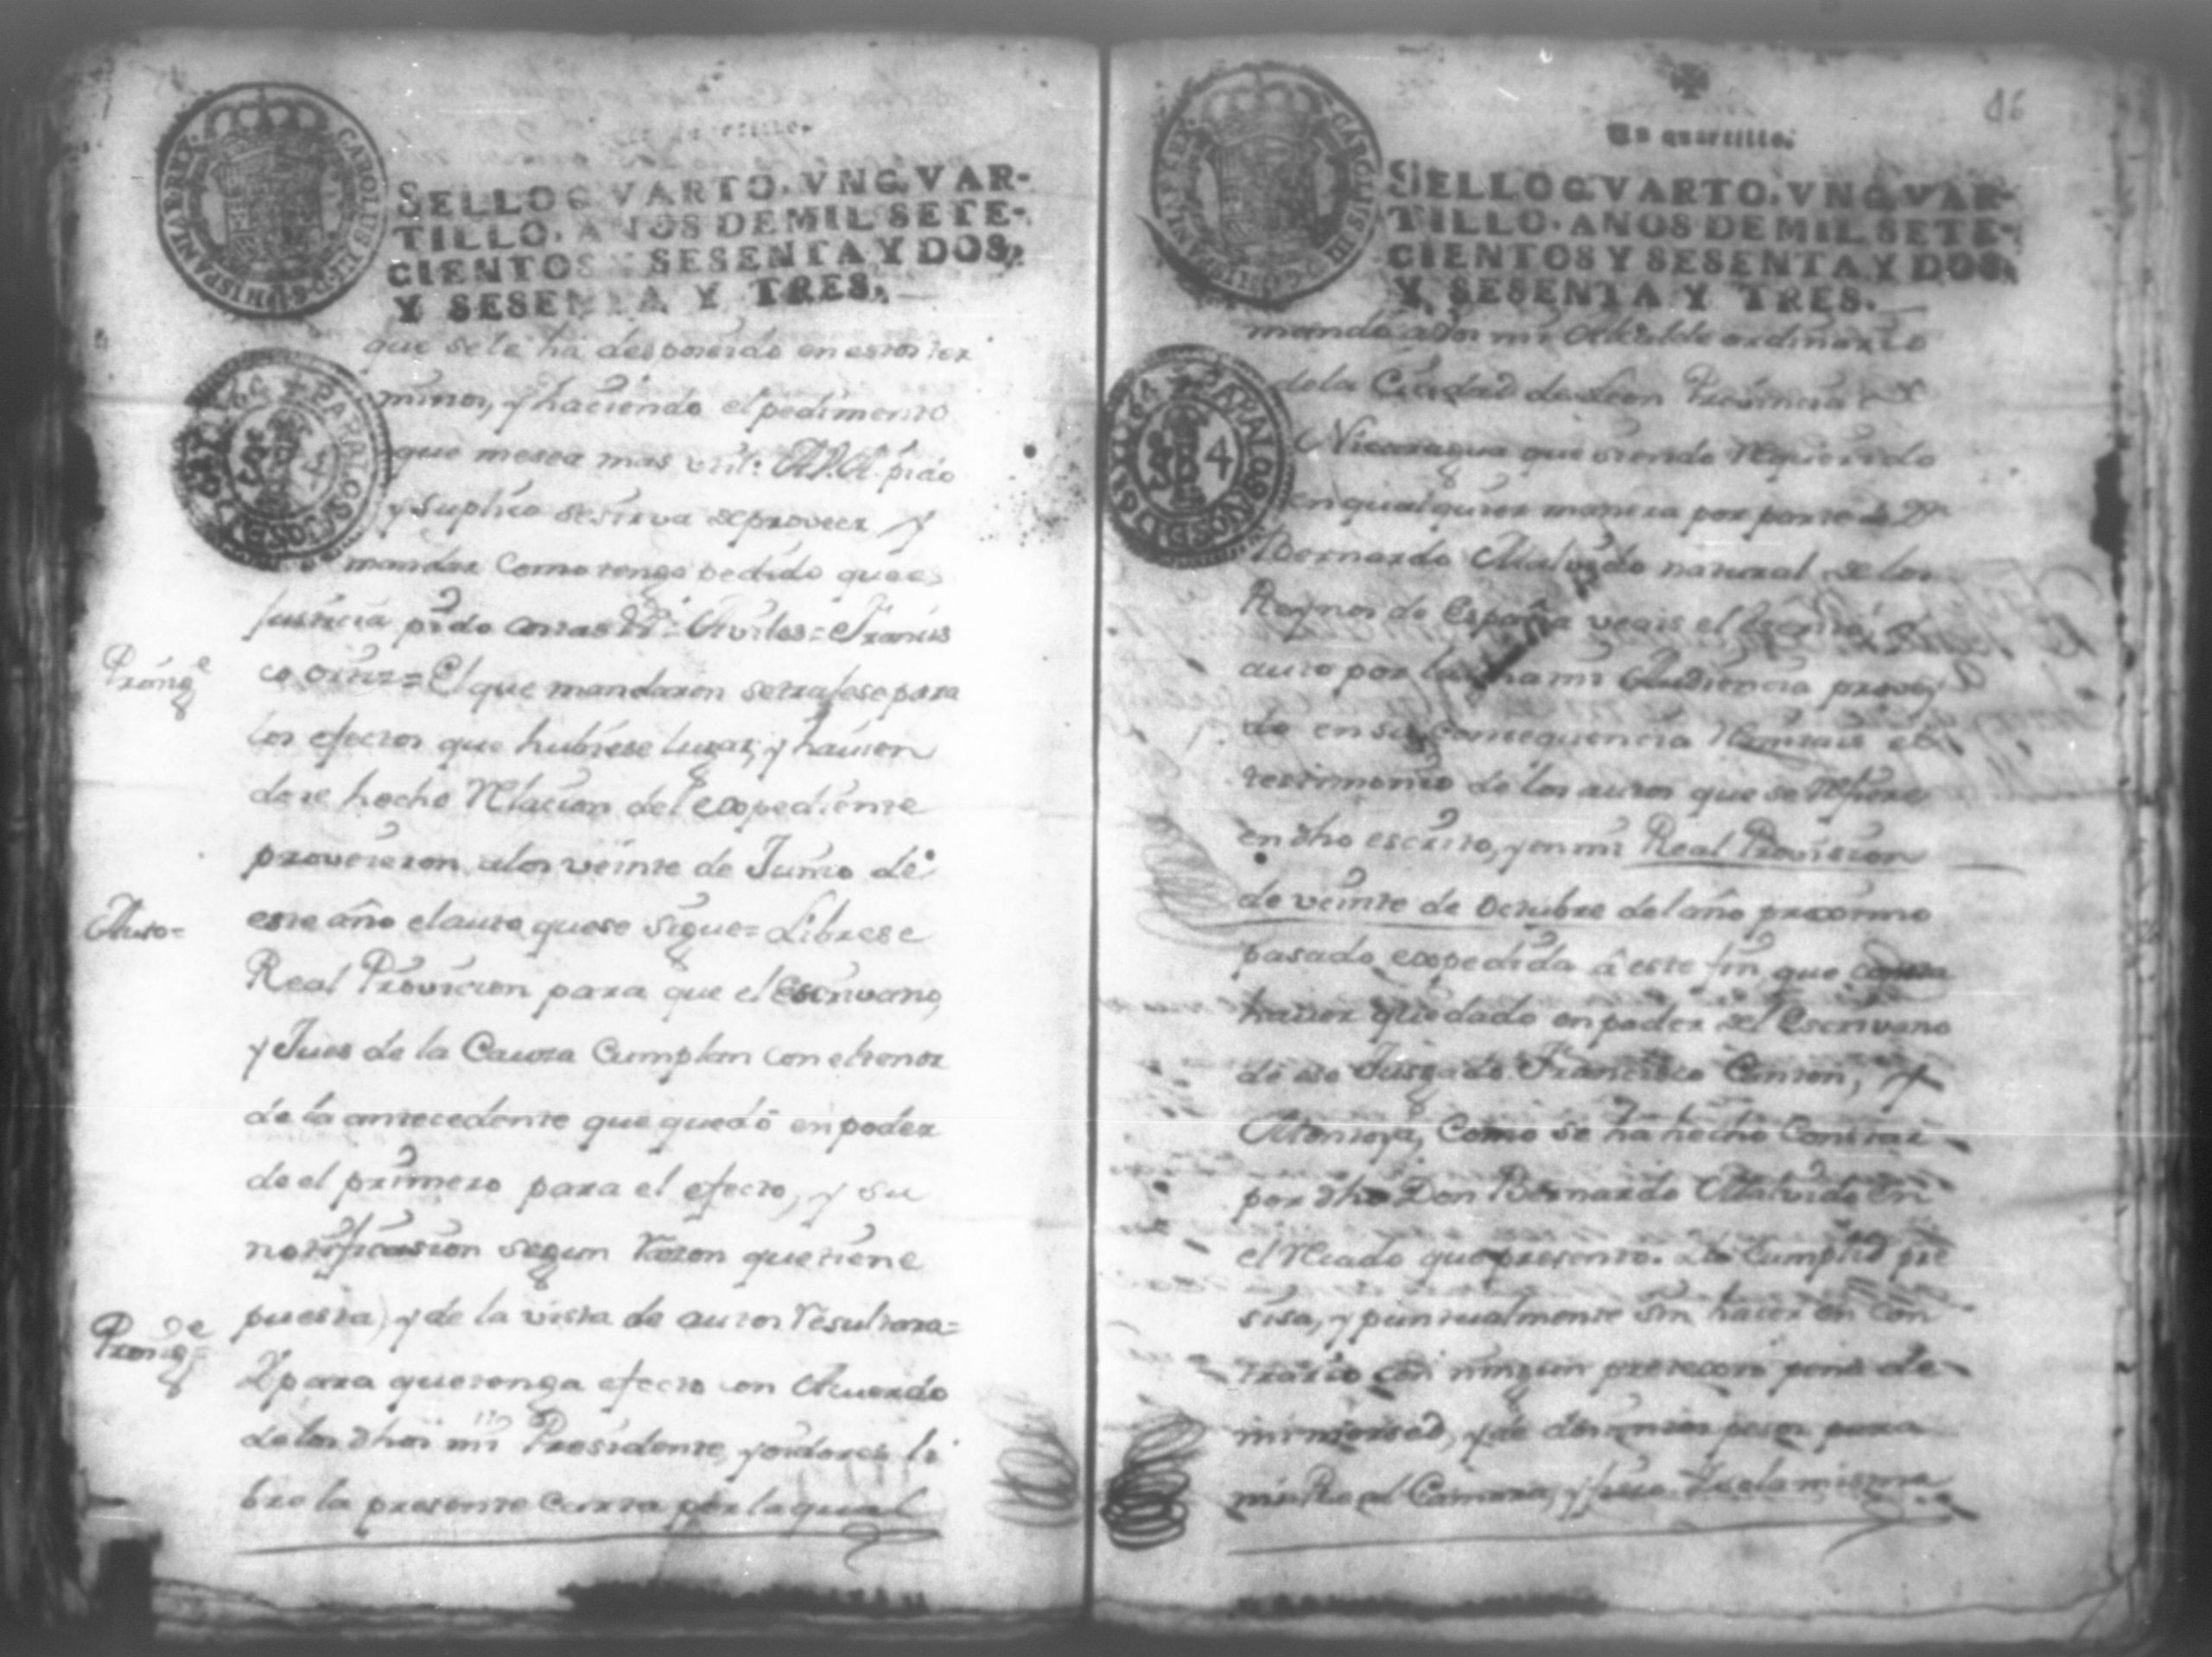 Un quartillo.
SELLO QVARTO, VN QVAR-
TILLO, AÑOS DE MIL SETE-
CIENTOS Y SESENTA Y DOS,
Y SESENTA Y TRES.
que se le ha desposeido en estos ter
minos, y haciendo el pedimento
que mesea mas util: A.V.A. pido
y suplico se sirva de proveer, y
mandar como tengo pedido que es
Justicia pido costas Vª = Aviles = Francis
co Ortiz = El que mandaron se trajese para
los efectos que hubiese lugar, y havien
dose hecho Relacion del expediente
proveieron a los veinte de Junio de
este año el auto que se sigue = Librese
Real Provicion para que el Escrivano,
y Jues de la Causa Cumplan con el tenor
de la antecedente que quedó en poder
de el primero para el efecto, y su
notificasion segun Razon que tiene
puesta, y de la vista de autos Resultara =
Y para que tenga efecto con Acuerdo
de los dhos mi Presidente, y oidores li
bro la presente Carta por la qual
Prosigᵉ
Auto =
Prosigᵉ =
CAROLUS III D G HISPANIAR REX
46
Un quartillo.
SELLO QVARTO, VN QVAR-
TILLO, AÑOS DE MIL SETE-
CIENTOS Y SESENTA Y DOS,
Y SESENTA Y TRES.
mando a vos mi Alcalde ordinario
de la Ciudad de Leon Provincia de
Nicaragua que siendo Requerido
en qualquier manera por parte de Dⁿ
Bernardo Malvido natural de los
Reynos de España veais el escrito, y
auto por la dha mi Audiencia provey
do en su consequencia Remitais el
testimonio de los autos que se Refiere
en dho escrito, y en mi Real Provision
de veinte de Octubre del año proximo
pasado expedida á este fin, que consta
haver quedado en poder del Escrivano
de ese Jusgado Francisco Canton, y
Montoya, Como se ha hecho Constar
por dho Don Bernardo Malvido en
el Recado que presento. Lo Cumplid pre
sisa, y puntualmente sin hacer en con
trario con ningun pretexto pena de
mi merced, y de docientos pesos para
mi Real Camara, y so la misma